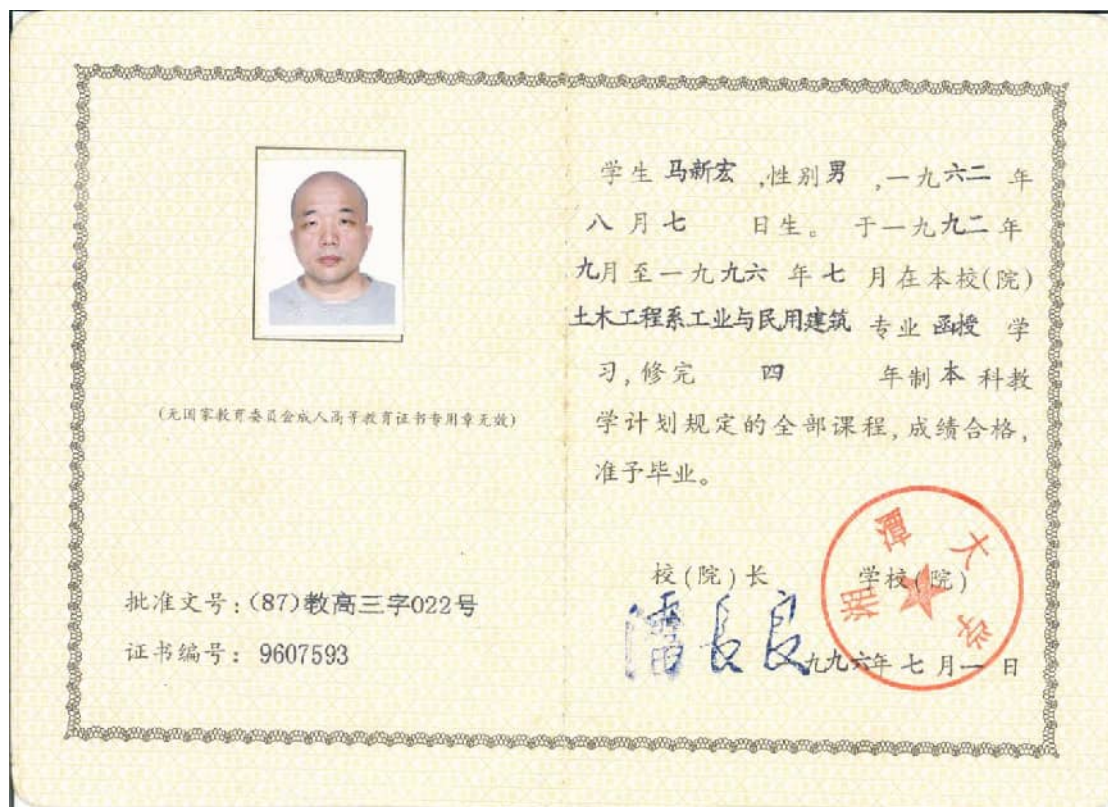 (无国家教育委员会成人高等教育证书专用章无效)
批准文号:(87)教高三字022号
证书编号: 9607593
学生 马新宏 ,性别 男 ,一九六二 年
八 月 七 日生。 于一九九二 年
九月至一九九六 年 七 月在本校(院)
土木工程系工业与民用建筑 专业 函授 学
习,修完 四 年制 本 科教
学计划规定的全部课程,成绩合格,
准予毕业。
校(院)长 学校(院)
九九六年 七 月 一 日
湘潭大学